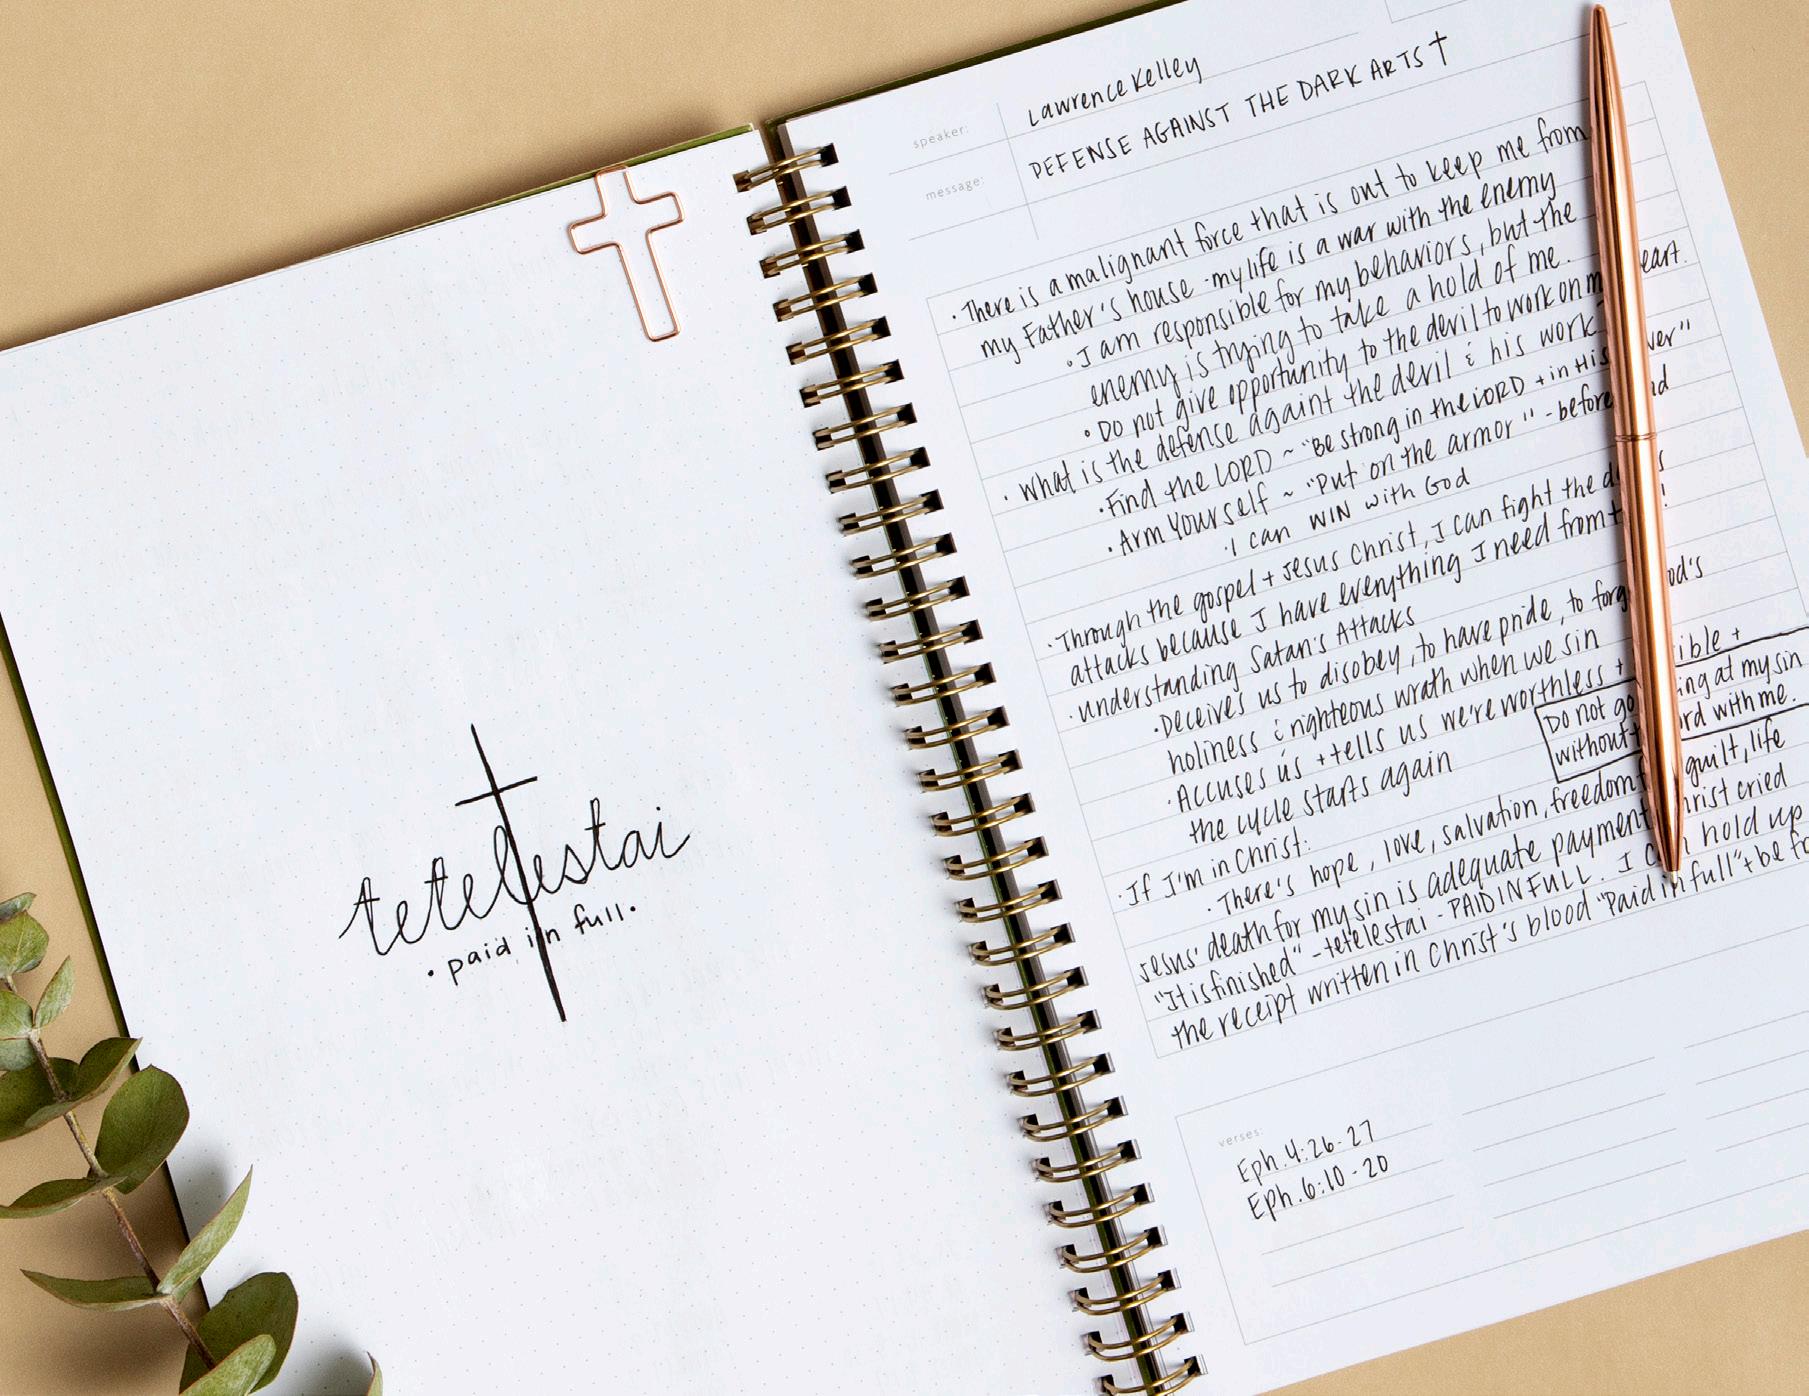 tetelestai
• paid in full •
speaker:
Lawrence Kelley
message:
DEFENSE AGAINST THE DARK ARTS †
• There is a malignant force that is out to keep me from
my Father's house - my life is a war with the enemy
• I am responsible for my behaviors, but the
enemy is trying to take a hold of me.
• Do not give opportunity to the devil to work on my heart.
• What is the defense againt the devil & his work
• Find the LORD ~ "Be strong in the LORD + in His
• Arm Yourself ~ "Put on the armor" - before
• I can WIN with God
• Through the gospel + Jesus Christ, I can fight the
attacks because I have everything I need from !
• understanding Satan's Attacks
• Deceives us to disobey, to have pride, to God's
holiness & righteous wrath when we sin
• Accuses us + tells us we're worthless + +
the cycle starts again
Do not go at my sin
without with me.
• If I'm in Christ:
• There's hope, love, salvation, freedom guilt, life
Jesus' death for my sin is adequate payment Christ cried
"It is finished" - tetelestai - PAID IN FULL. I can hold up
the receipt written in Christ's blood "Paid in full" + be
verses:
Eph. 4:26-27
Eph. 6:10-20